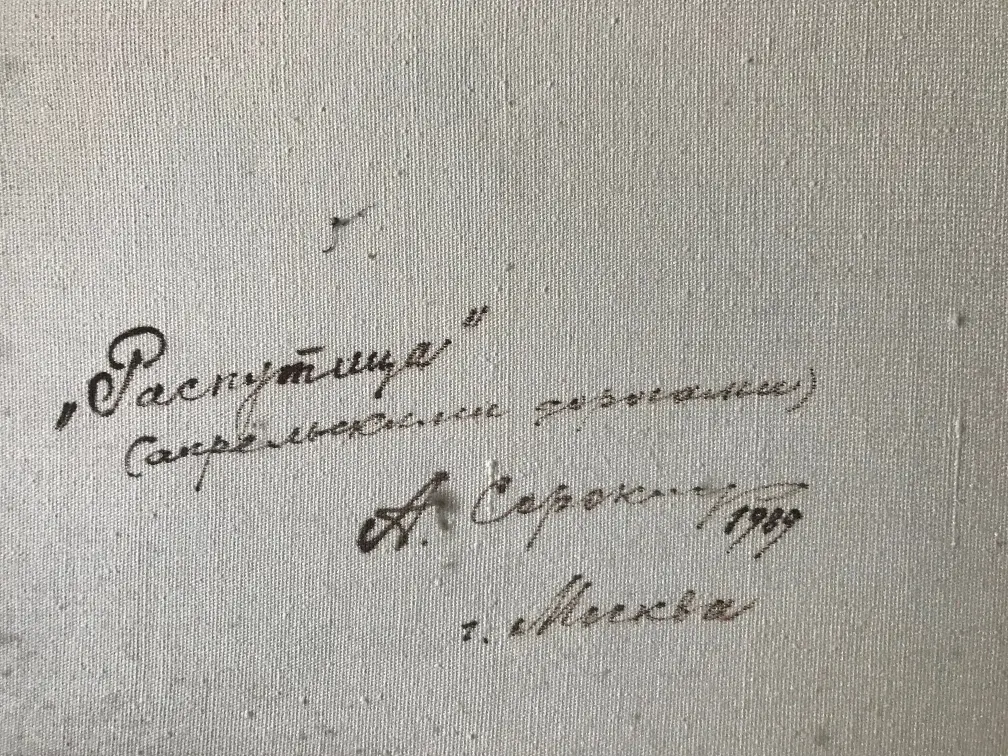 „Распутица"
(апрельскими дорогами)
А. 1989
г. Москва